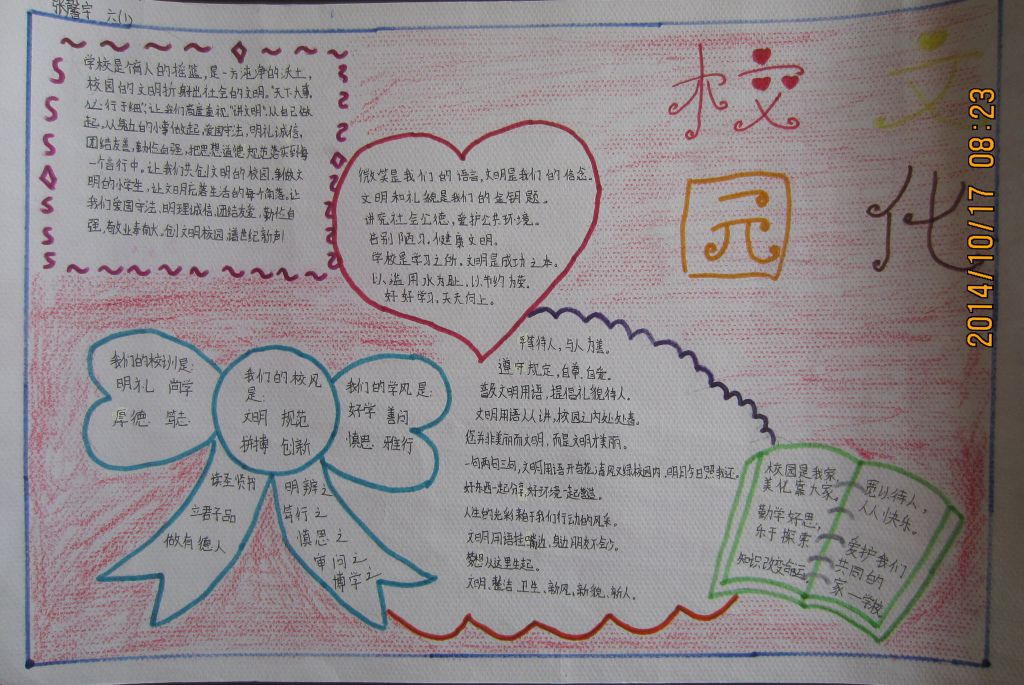 张馨宇 六(1)
校园文化
学校是育人的摇篮,是一方洁净的沃土,
校园的文明折射出社会的文明。"天下大事,
必行于细",让我们高度重视"讲文明",从自己做
起,从身边的小事做起,爱国守法,明礼诚信,
团结友善,勤俭自强,把思想道德规范落实到每
一个言行中。让我们共创文明的校园,争做文
明的小学生,让文明后落生活的每个角落。让
我们爱国守法,明理诚信,团结友爱,勤俭自
强,敬业奉献。创文明校园,谱世纪新声
微笑是我们的语言,文明是我们的信念。
文明和礼貌是我们的金钥题。
讲究社会公德,爱护公共环境。
告别陋习,健康文明。
学校是学习之所,文明是成功之本。
以滥用水为耻,以节约为荣。
好好学习,天天向上。
我们的校训是:
明礼 尚学
厚德 笃志
我们的校风
是:
文明 规范
拼搏 创新
我们的学风是:
好学 善问
慎思 雅行
读圣贤书
立君子品
做有德人
明辨之
笃行之
慎思之
审问之
博学之
平等待人,与人为善。
遵守规定,自尊自爱。
普及文明用语,提倡礼貌待人。
文明用语人人讲,校园之内处处春。
您并非美丽而文明,而是文明才美丽。
一句两句三句,文明用语开奇葩,清风文绿校园内,明日今日照我还。
好东西一起分享,好环境一起营造。
人生的光彩来自于我们行动的风采。
文明用语挂嘴边,身边朋友不会少。
梦想从这里生起。
文明、整洁、卫生、新风,新貌、新人。
校园是我家,
美化靠大家。
勤学好思,
乐于探索
知识改变命运
宽以待人,
人人快乐。
爱护我们
共同的
家—学校
2014/10/17 08:23